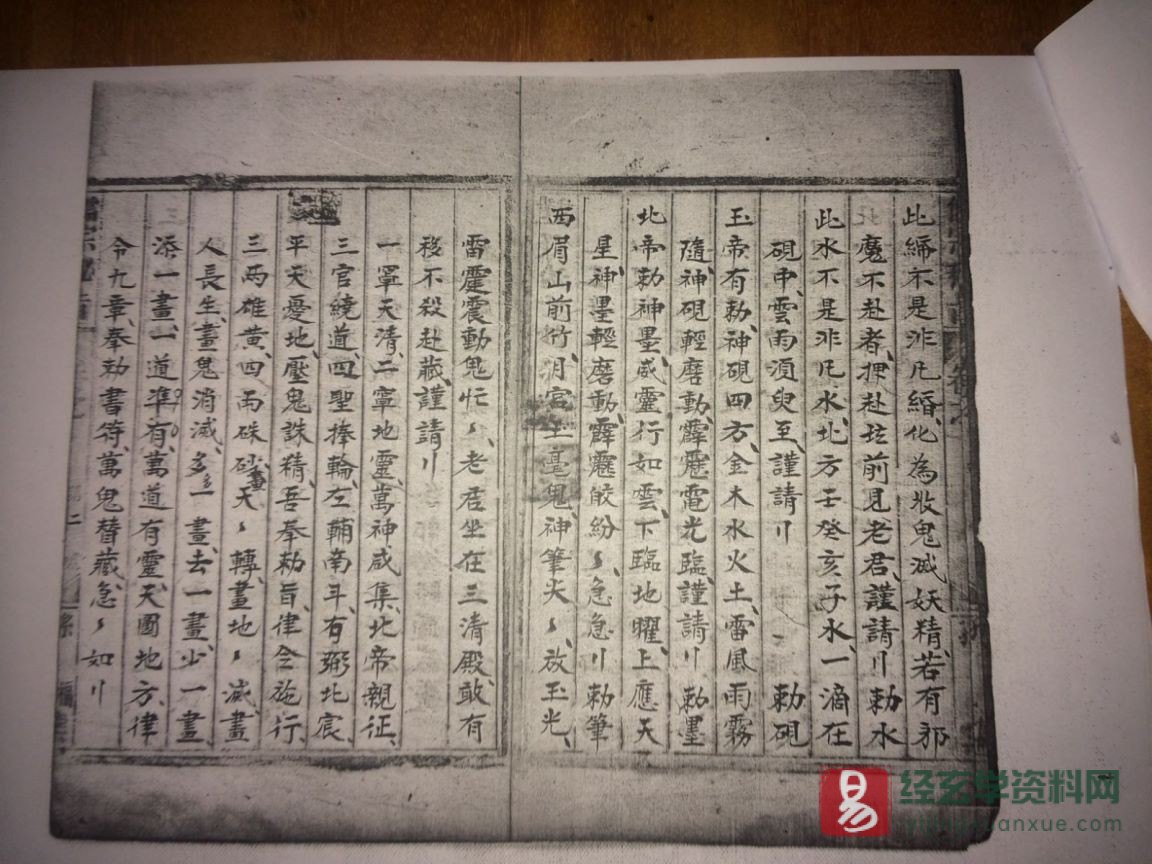 此締不是非凡締、化為收鬼滅妖精、若有邪
魔不赴者、押赴坛前見老君、謹請〢 勅水
此水不是非凡水、北方壬癸亥子水、一滴在
硯中、雲雨須臾至、謹請〢 勅硯
玉帝有勅、神硯四方、金木水火土、雷風雨霧
隨、神硯輕磨動、霹靂電光臨、謹請〢 勅墨
北帝勅神墨、威靈行如雲、下臨地曜、上應天
星、神墨輕磨動、霹靂皎紛〻、急急〢 勅筆
西眉山前竹、月宮玉毫鬼、神筆尖〻、放玉光、
雷霆震動鬼忙〻、老君坐在三清殿、敢有
移不殺赴藏、謹請〢
一寧天清、二寧地靈、萬神咸集、北帝親征、
三官繞道、四聖捧輪、左輔南斗、右弼北宸、
平天憂地、壓鬼誅精、吾奉勅旨、律令施行、
三兩雄黃、四兩硃砂、畫天〻轉、畫地〻滅、畫
人長生、畫鬼消滅、多一畫、去一畫、少一畫
添一畫、一道準有、萬道有靈、天圓地方、律
令九章、奉勅書符、萬鬼替藏、急〻如〢
易
经玄学资料网